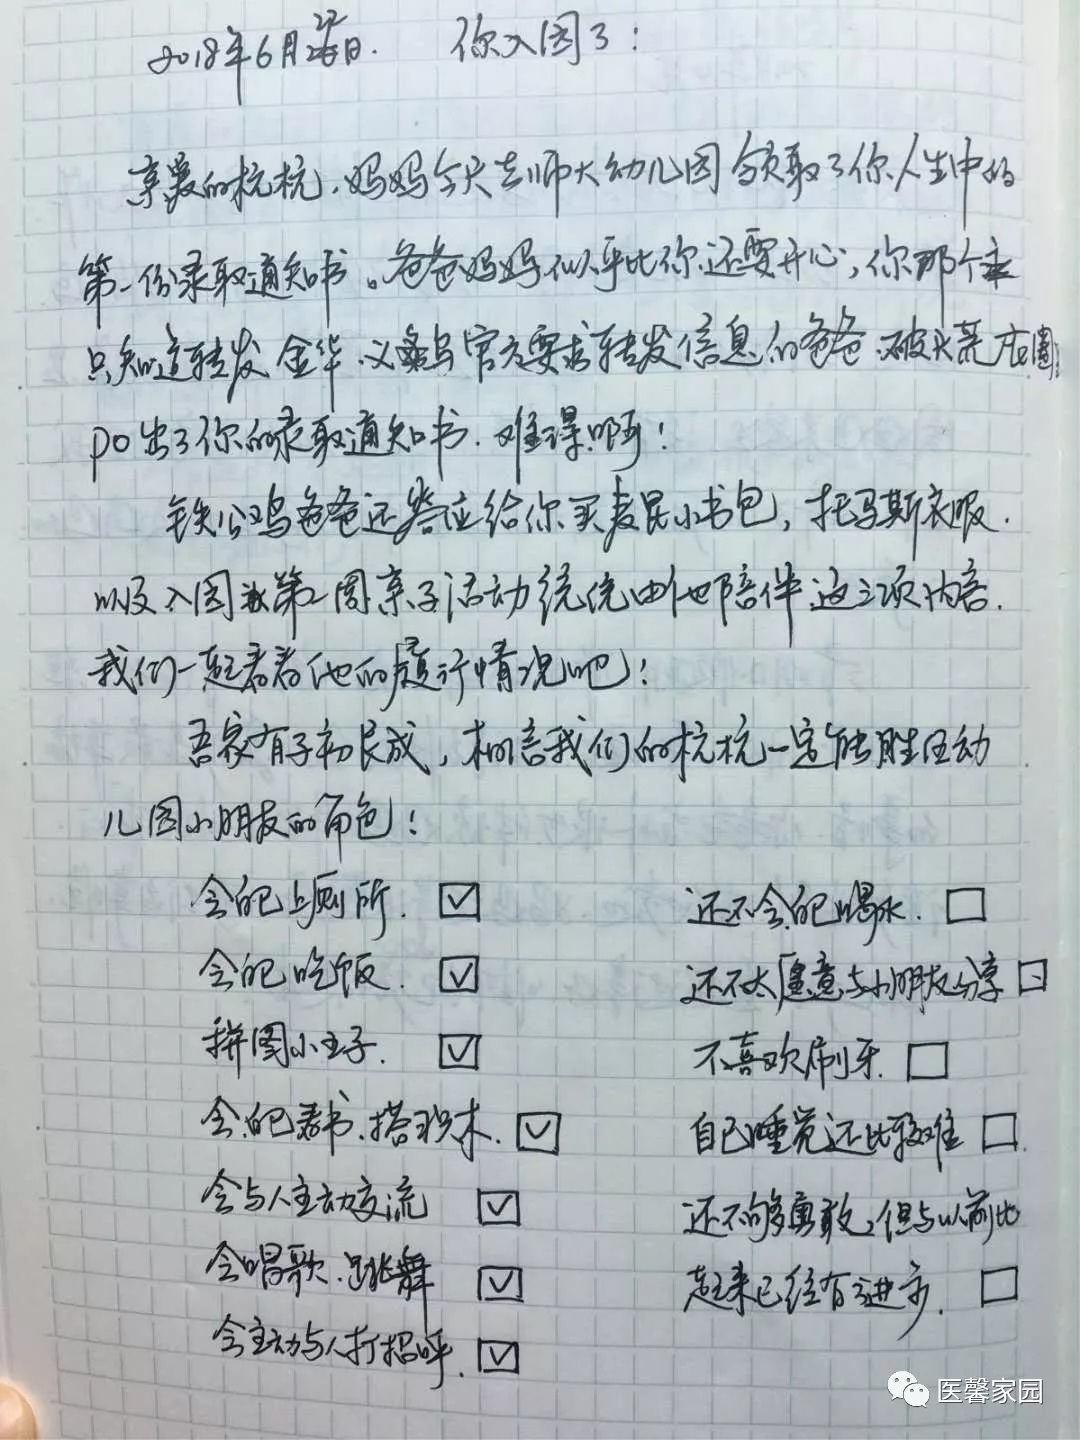 2018年6月27日. 你入园了:
亲爱的杭杭,妈妈今天去师大幼儿园领取了你人生中的
第一份录取通知书。爸爸妈妈似乎比你还要开心,你那个
只知道转发金华、义乌官方要求转发信息的爸爸、破天荒在圈里
po出了你的录取通知书.难得啊!
铁公鸡爸爸还答应给你买麦昆小书包,托马斯衣服.
以及入园第一周亲子活动统统由他陪伴这三项内容.
我们一起看看他的履行情况吧!
吾家有子初长成,相信我们的杭杭一定能胜任幼
儿园小朋友的角色!
会自己上厕所. ☑
会自己吃饭. ☑
拼图小王子. ☑
会自己看书、搭积木. ☑
会与人主动交流 ☑
会唱歌、跳舞 ☑
会主动与人打招呼. ☑
还不会自己喝水. □
还不太愿意与小朋友分享 □
不喜欢刷牙. □
自己睡觉还比较难 □
还不够勇敢,但与以前比
起来已经有了进步. □
医馨家园